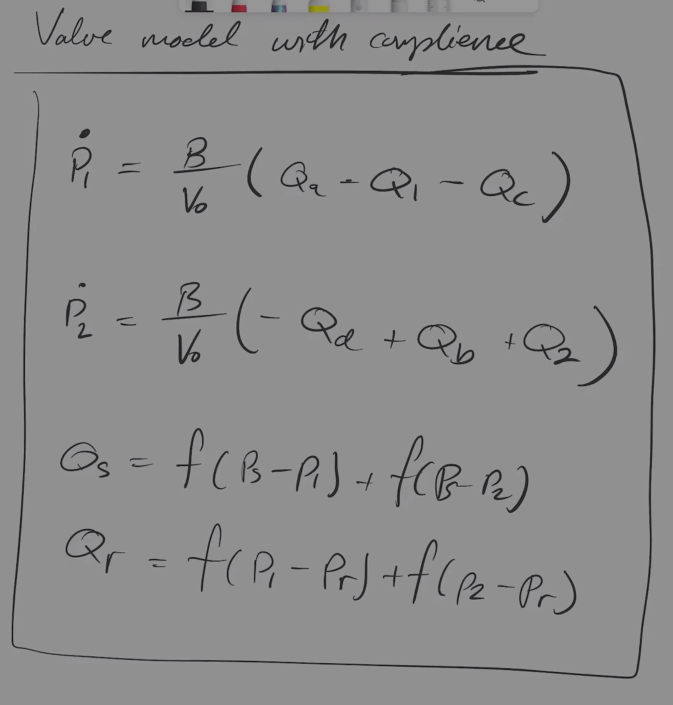 Valve model with complience
Ṗ₁ = B/V₀ (Qa - Q₁ - Qc)
Ṗ₂ = B/V₀ (- Qd + Qb + Q₂)
Qs = f(Ps - P₁) + f(Ps - P₂)
Qr = f(P₁ - Pr) + f(P₂ - Pr)